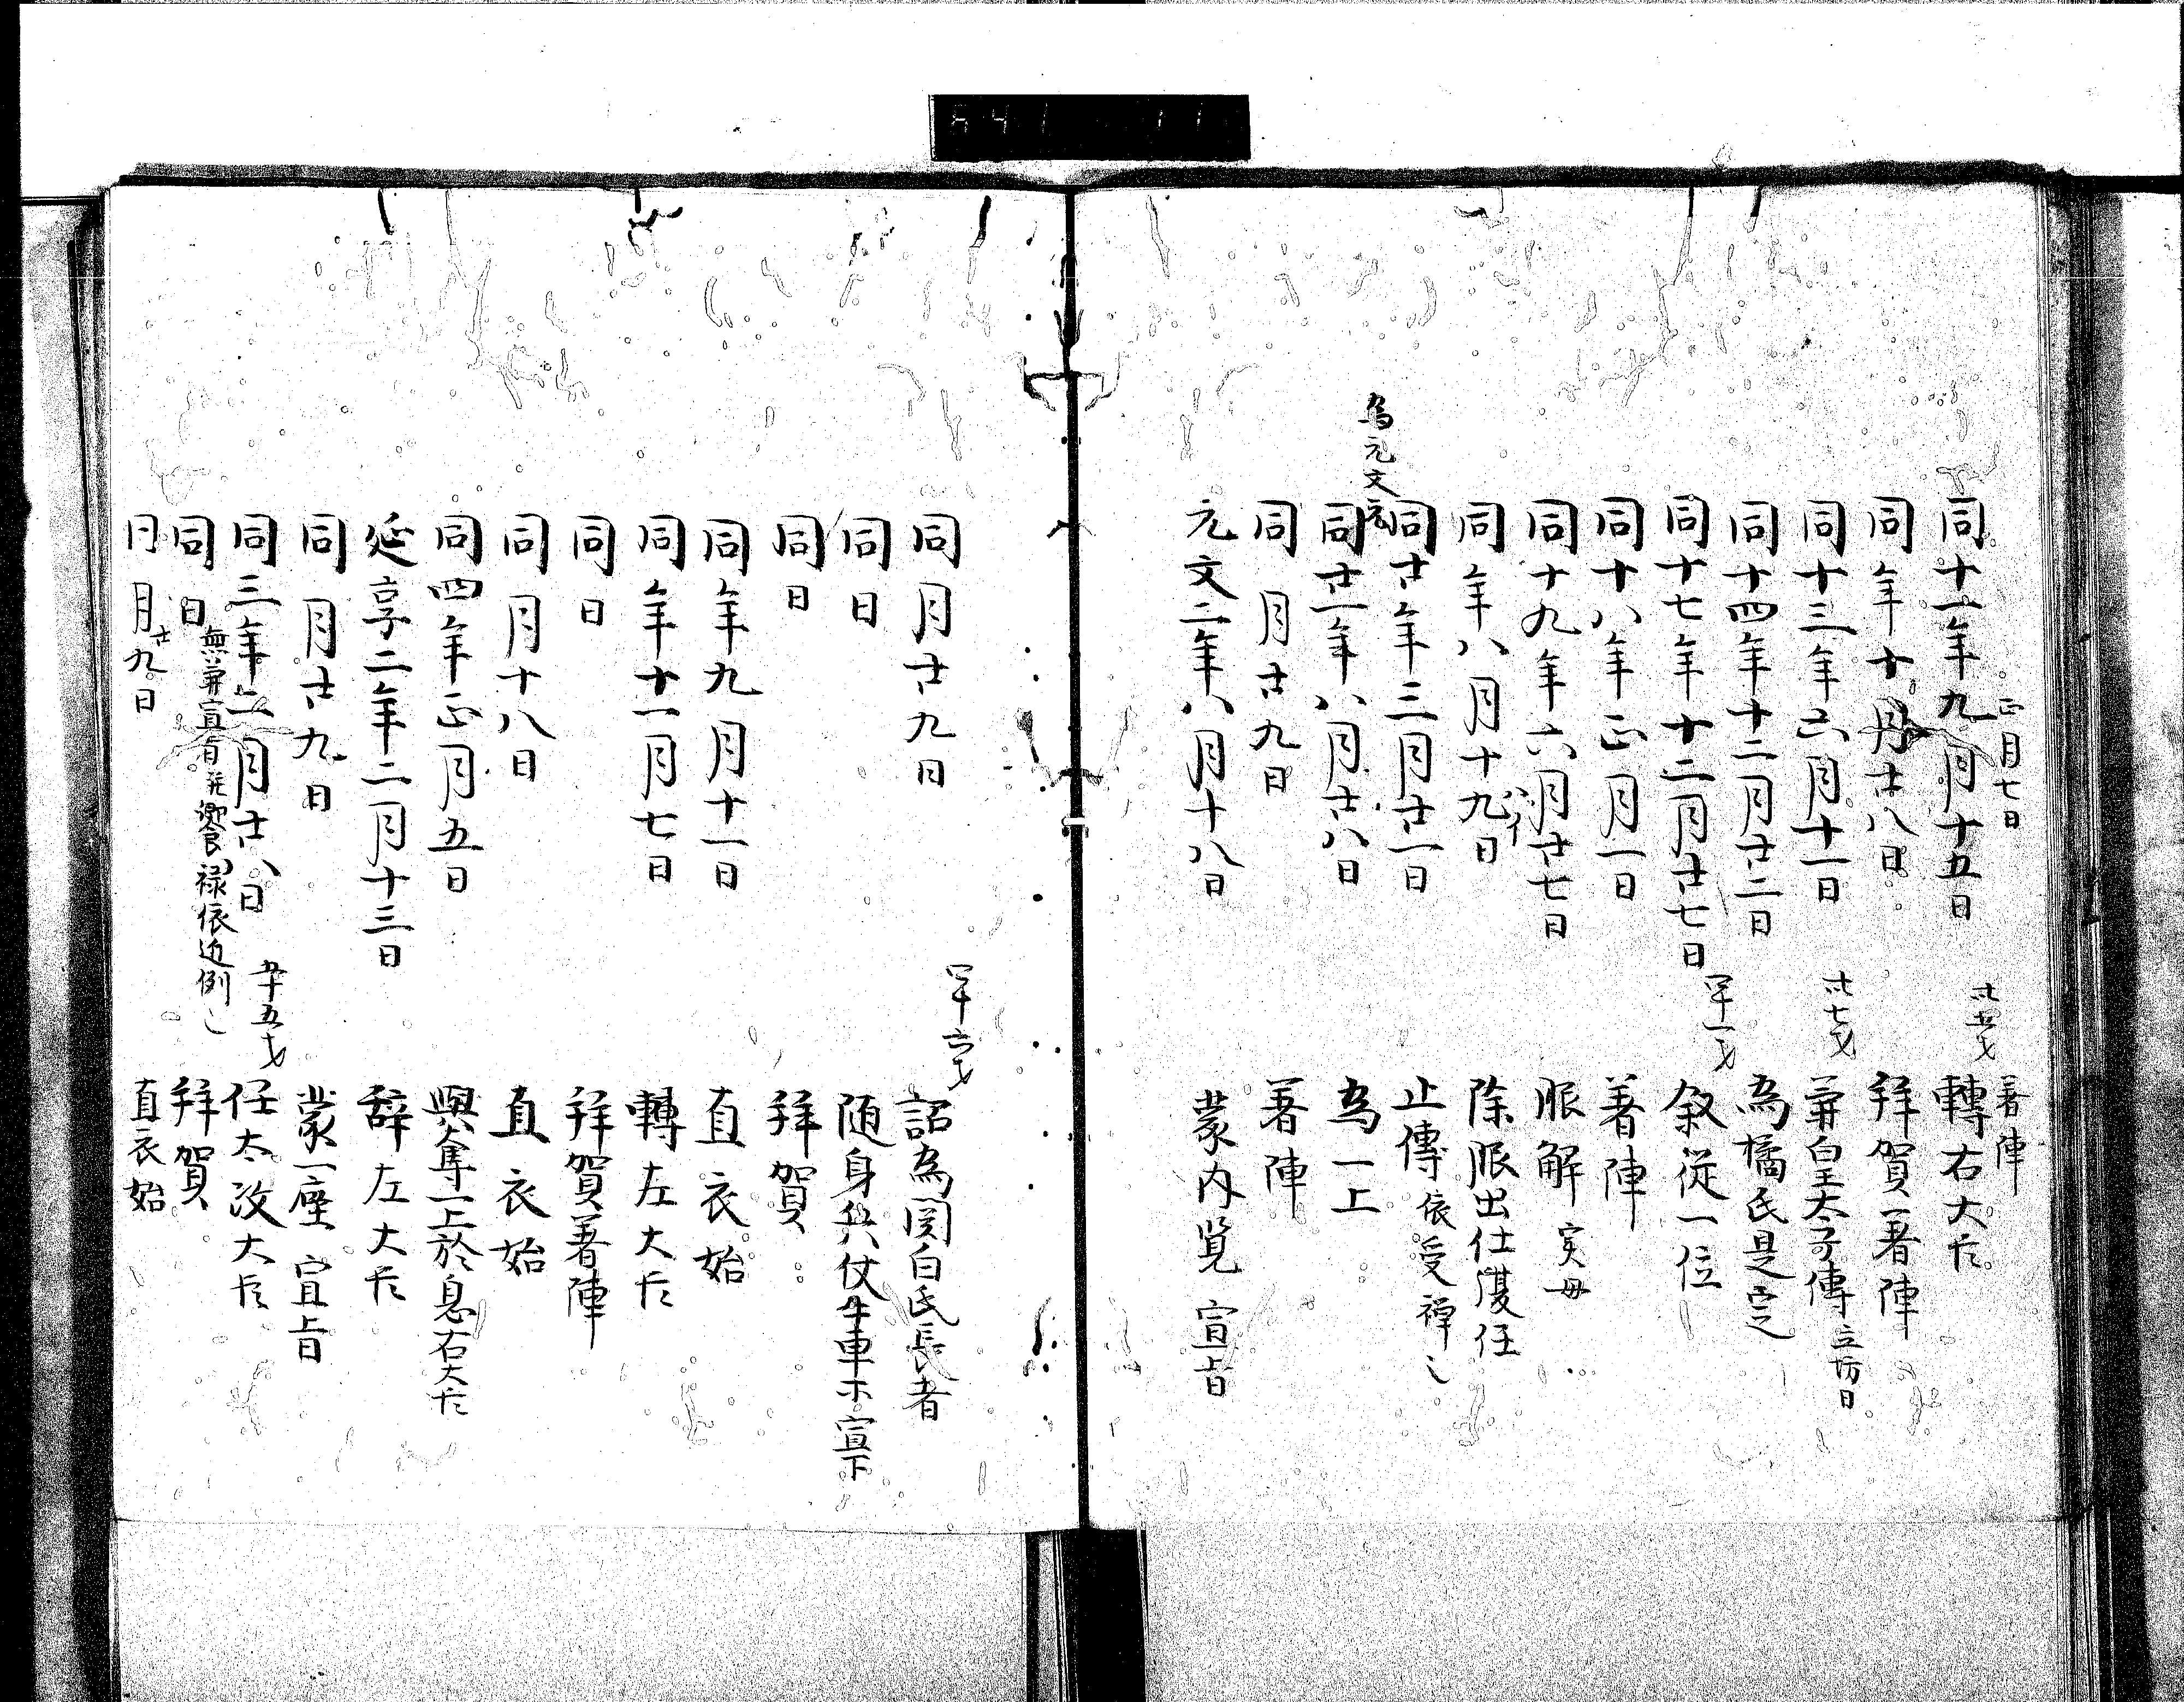 正月七日 著陣
同十一年九月十五日 卅五才 轉右大臣
同年十一月廿八日 拝賀著陣
同十三年六月十一日 卅七才 兼皇太子傅 立坊日
同十四年十二月廿二日 為橘氏是定
同十七年十二月廿七日 四十一才 叙従一位
同十八年正月一日 著陣
同十九年六月廿七日 服解 実母
同年八月十九日 除服出仕復任
同廿年三月廿一日 止傅 依受禅〻
為元文元
同廿一年八月廿八日 為一上
同月廿九日 著陣
元文二年八月十八日 蒙内覧 宣旨
同月廿九日 四十六才 詔為関白氏長者
同日 随身兵仗牛車ホ宣下
同日 拝賀
同年九月十一日 直衣始
同年十一月七日 轉左大臣
同日 拝賀著陣
同月十八日 直衣始
同四年正月五日 與奪一上於息右大臣
延享二年二月十三日 辞左大臣
同月廿九日 蒙一座 宣旨
同三年二月廿八日 五十五才 任太政大臣
同日 無兼宣旨并饗禄依近例〻 拝賀
同月廿九日 直衣始
641 11